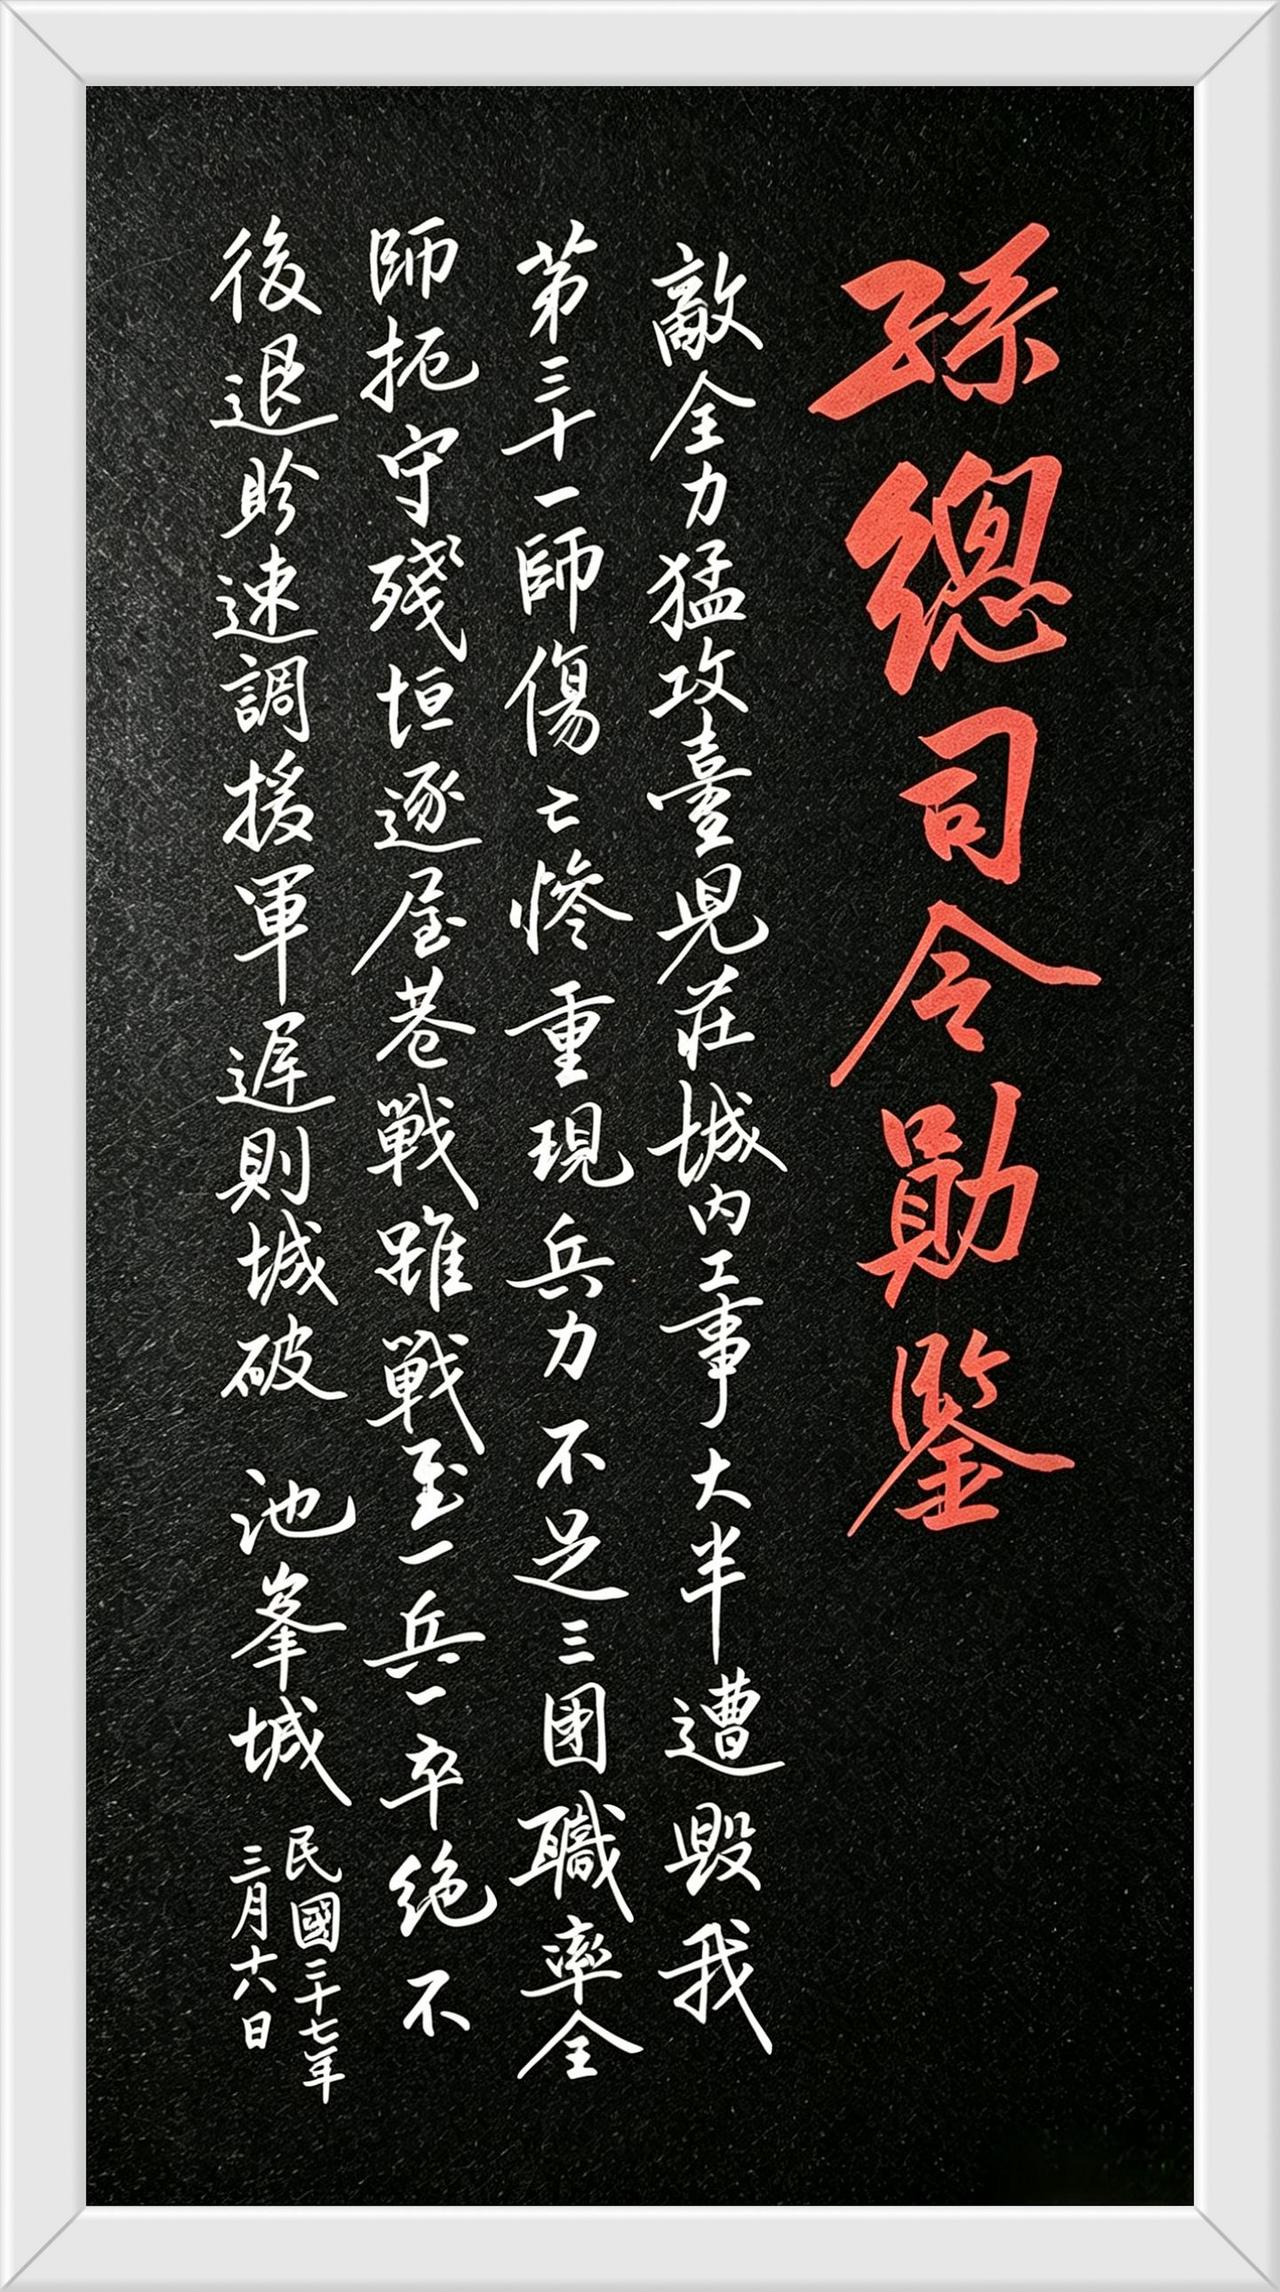 孫總司令勛鑒
敵全力猛攻臺児莊城内工事大半遭毀我
第三十一師傷亡惨重現兵力不足三团職率全
師扼守殘垣逐屋巷戰雖戰至一兵一卒絕不
後退盼速調援軍遲則城破 池峯城
民國二十七年
三月十六日